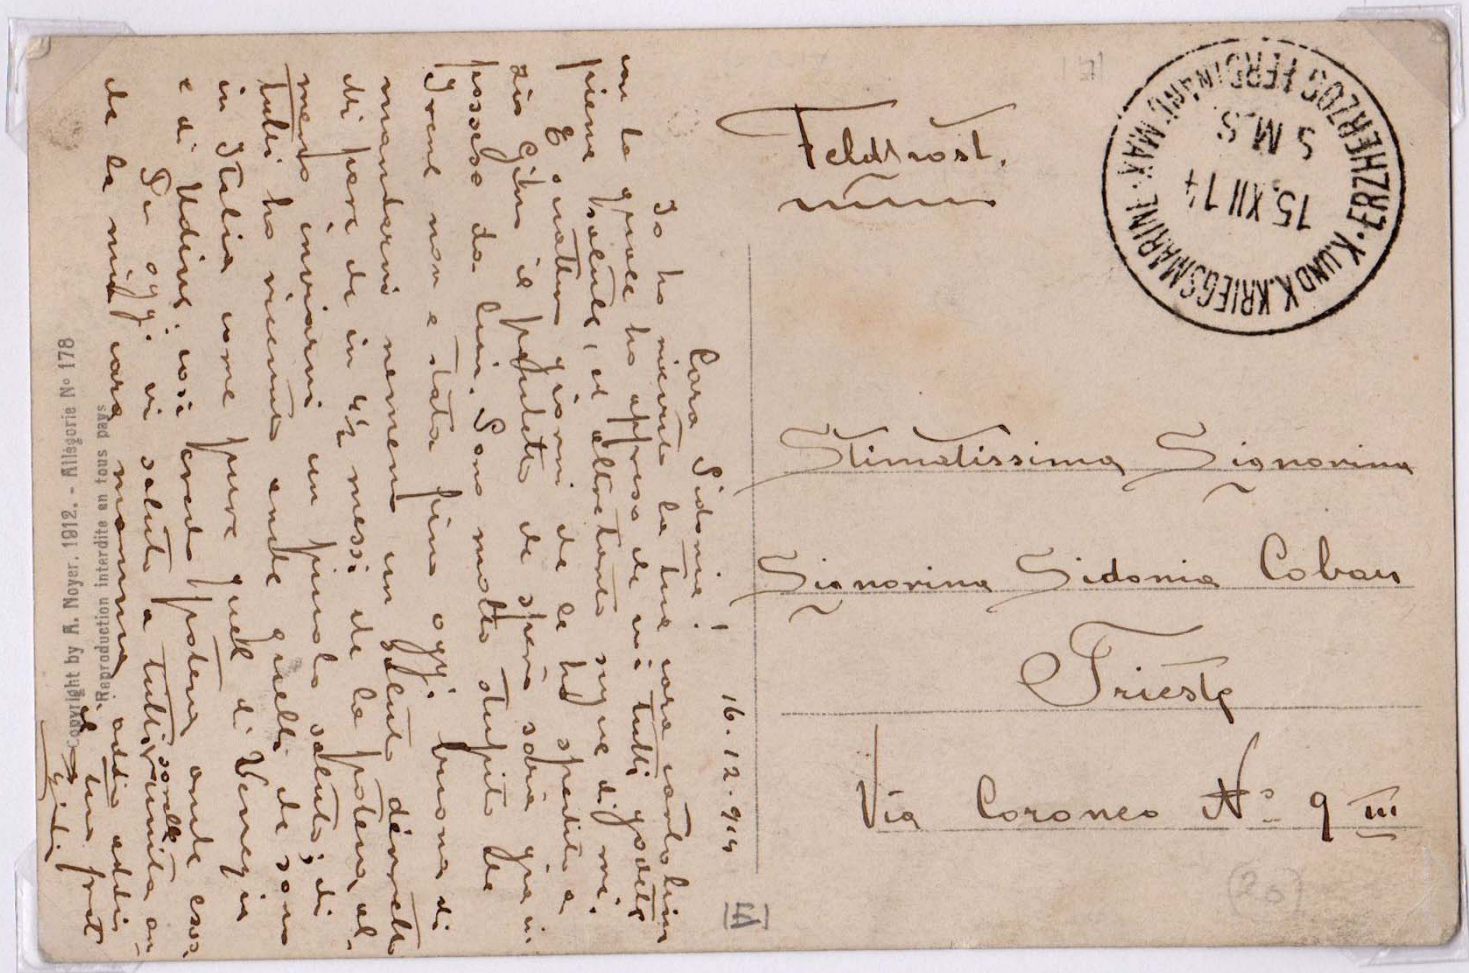 Feldpost.
K.UND K. KRIEGSMARINE · S.M.S. ERZHERZOG FERDINAND MAX ·
15.XII 14
Stimatissima Signorina
Signorina Sidonia Coban
Trieste
Via Coroneo No 9 III
(20)
16-12-914
Cara Sidonia!
Io ho ricevuto la tua cara cartolina
con la quale ho appreso che voi tutti godete
piena salute, el altretanto segue di me.
E quattro giorni che le ho spedito a
zio il pachetto che spero sarà già in
possesso da lui. Sono molto stupito che
Irene non è stata fino oggi buona di
mandarmi nemeno un saluto dirrette
mi pare che in 4½ messi che la poteva al
meno inviarmi un picolo saluto; di
tutti ho ricevuto anche quelli che sono
in Italia come pure quel di Venezia
e di Udine; così credo poteva anche essa
Per oggi vi saluto a tutti
sorelle
de la mia cara mamma addio addio
il tuo frat
Copyright by A. Noyer. 1912. - Allégorie No 178
Reproduction interdite en tous pays